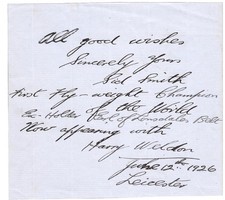 All good wishes
Sincerely Yours
Sid Smith
First Fly-weight Champion
of the World
Ex-Holder Earl of Lonsdales Belt
Now appearing with
Harry Weldon
June 12th 1926
Leicester